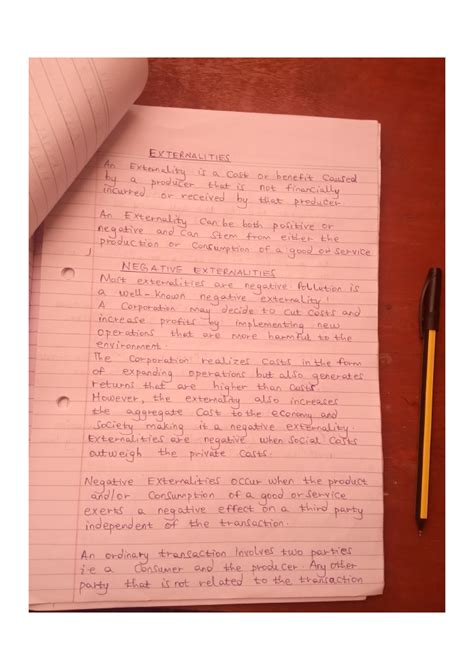 EXTERNALITIES
An Externality is a Cost or benefit Caused
by a producer that is not financially
incurred or received by that producer
An Externality Can be both positive or
negative and can stem from either the
production or Consumption of a good or service
NEGATIVE EXTERNALITIES
Most externalities are negative. Pollution is
a well-known negative externality.
A Corporation may decide to cut costs and
increase profits by implementing new
operations that are more harmful to the
environment.
The Corporation realizes Costs in the form
of expanding operations but also generates
returns that are higher than costs.
However, the externality also increases
the aggregate Cost to the economy and
society making it a negative externality.
Externalities are negative when social Costs
outweigh the private Costs.
Negative Externalities occur when the product
and/or Consumption of a good or service
exerts a negative effect on a third party
independent of the transaction.
An ordinary transaction involves two parties
i.e a Consumer and the producer. Any other
party that is not related to the transaction